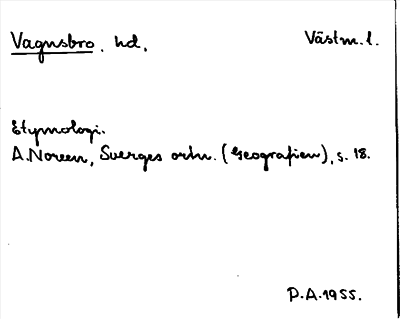 Vagnsbro. hd. Västm. l.
Etymologi.
A. Noreen, Sveriges ortn. (Geografien), s. 18.
P.A. 1955.